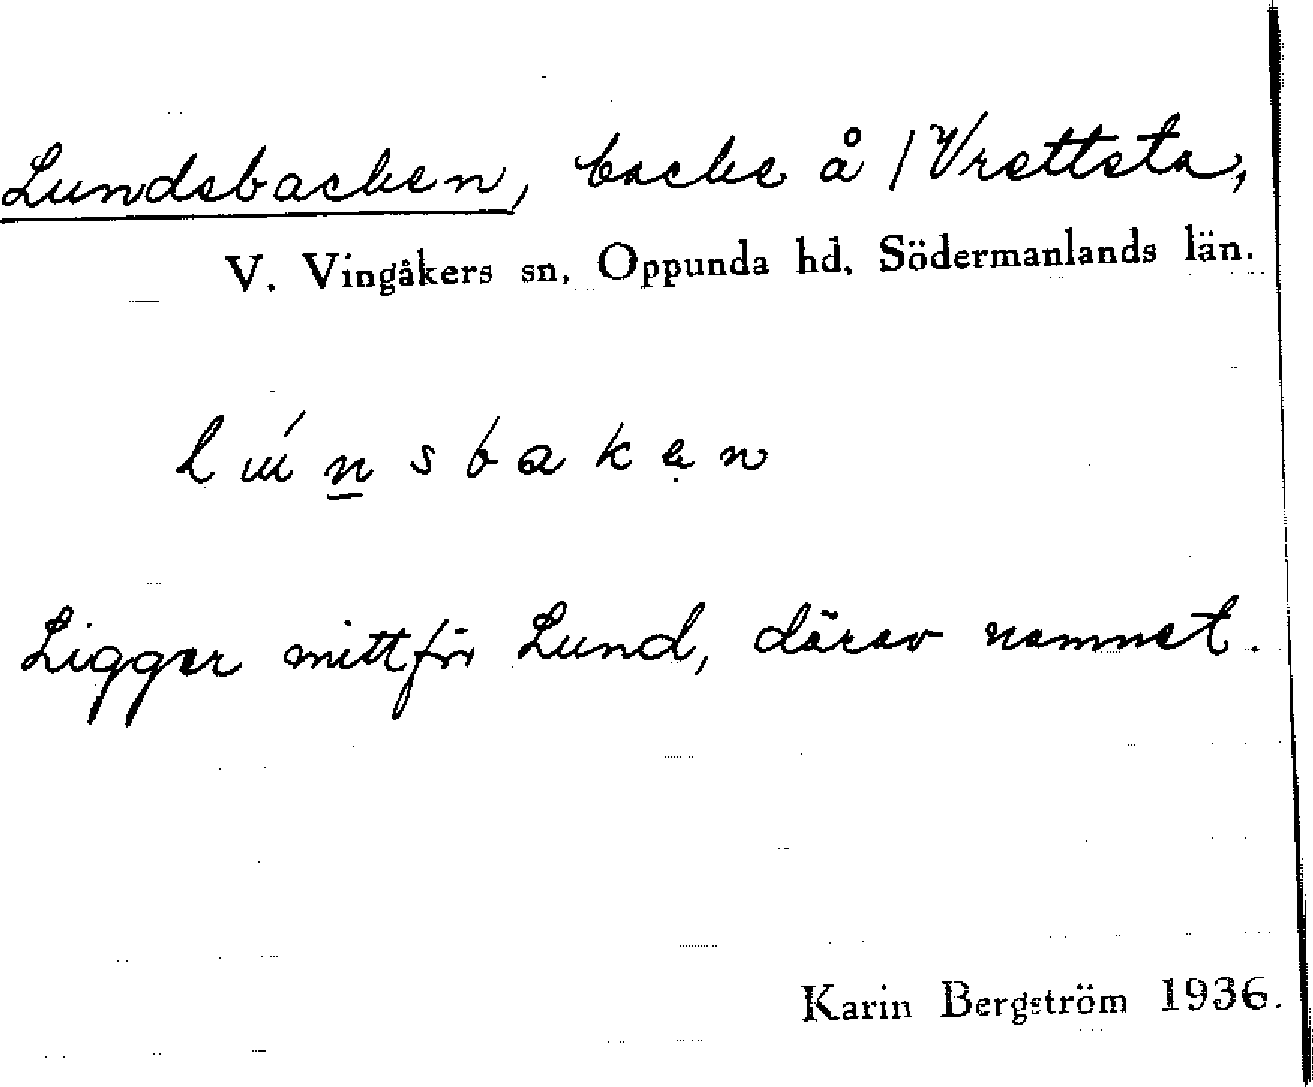 Lundsbacken, backe å /Vrettsta,
V. Vingåkers sn, Oppunda hd, Södermanlands län.
lúnsbakẹn
Ligger mittför Lund, därav namnet.
Karin Bergström 1936.